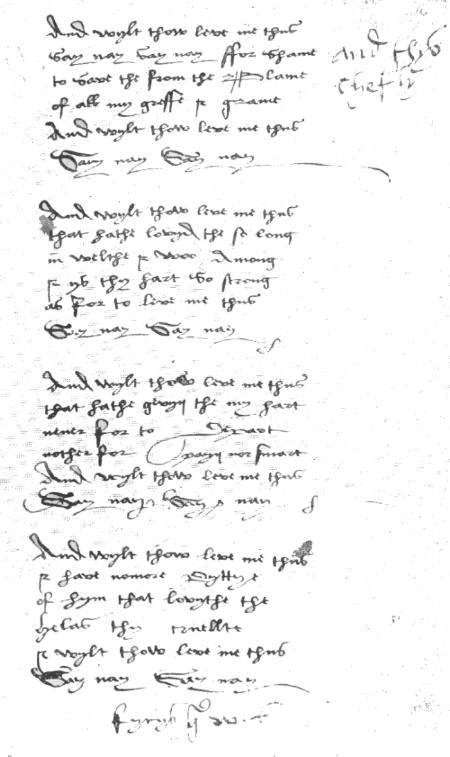 And wylt thow leve me thus
Say nay Say nay ffor shame
to save the from the Blame
of all my greffe & grame
And wylt thow leve me thus
Say nay Say nay
And thys
chefly
And wylt thow leve me thus
that hathe lovyd the so long
in welthe & woo Among
& ys thy hart so strong
as for to leve me thus
Say nay Say nay
And wylt thow leve me thus
that hathe gevyn the my hart
never for to Depart
nother for payn nor smart
And wylt thow leve me thus
Say nay Say nay
And wylt thow leve me thus
& have nomore Pyttye
of hym that lovythe the
helas thy cruellte
& wylt thow leve me thus
Say nay Say nay